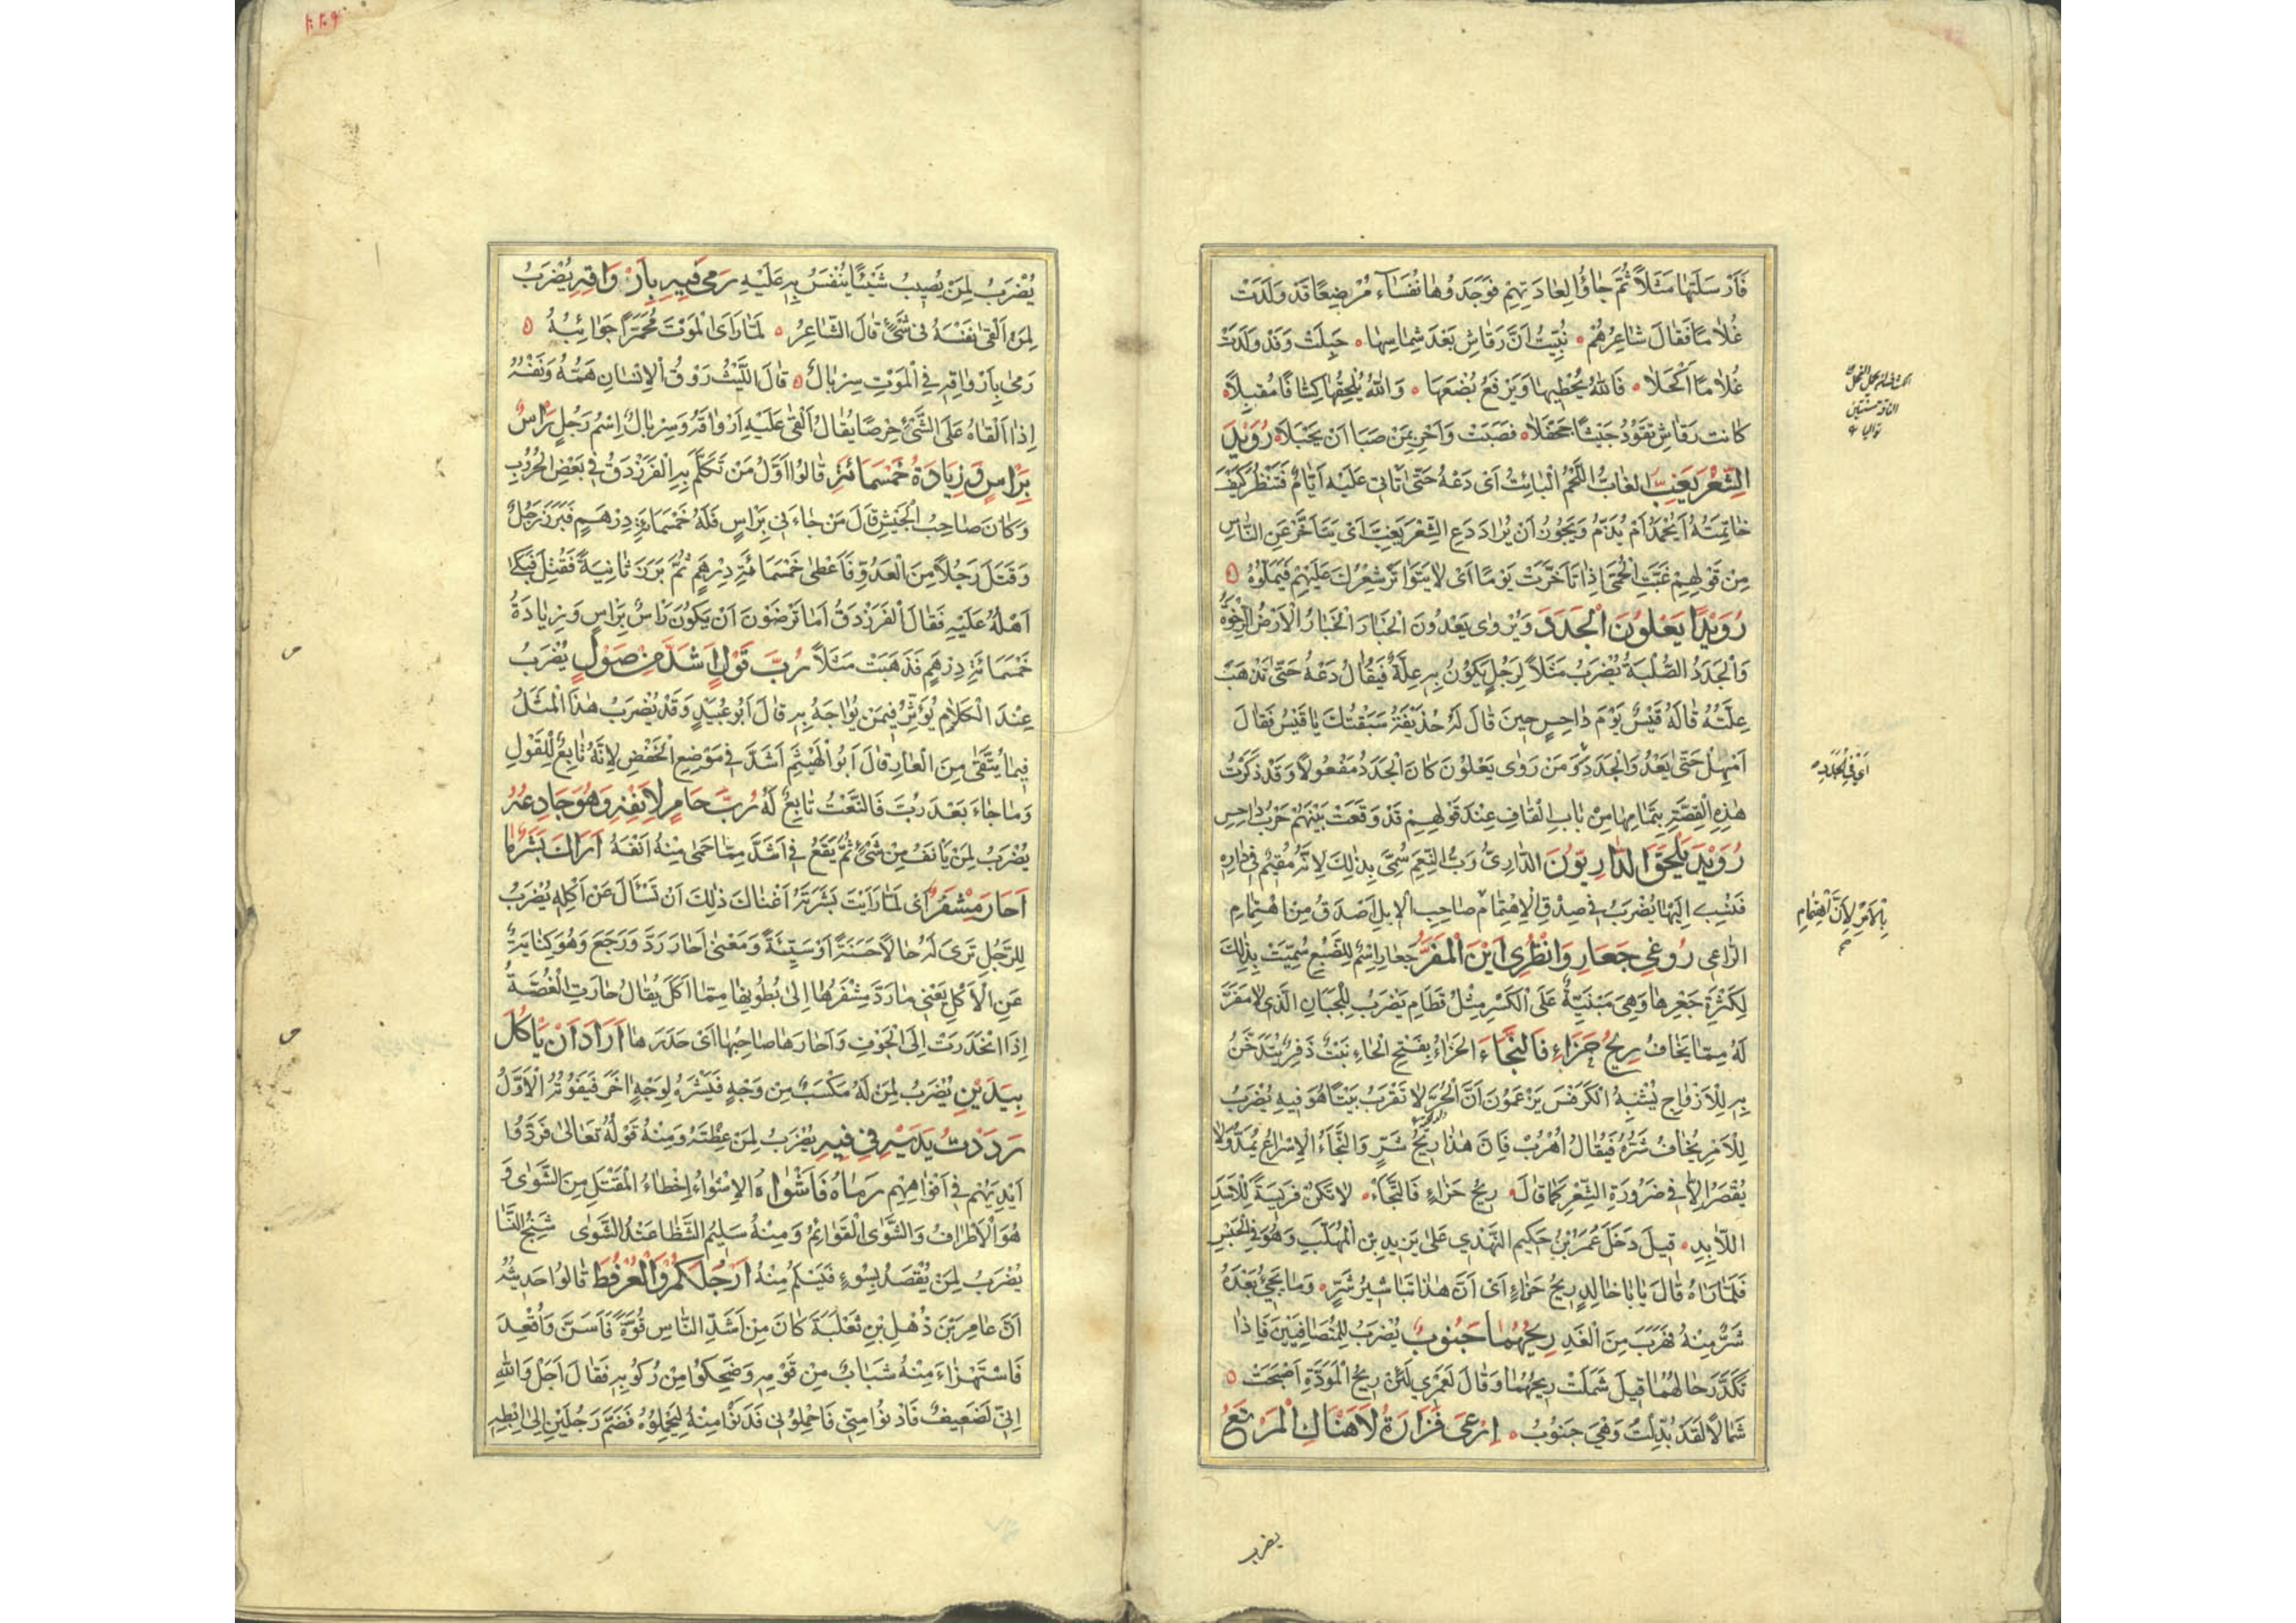 فَاَرْسَلَتْهَا مَثَلًا ثُمَّ جَاؤُا لِعَادَتِهِمْ فَوَجَدُوهَا نُفَسَاءَ مُرْضِعًا قَدْ وَلَدَتْ
غُلَامًا فَقَالَ شَاعِرُهُمْ نُبِّيتُ اَنَّ رَقَاشِ بَعْدَ شِمَاسِهَا حَبِلَتْ وَقَدْ وَلَدَتْ
غُلَامًا اَكْحَلَا فَاللهُ يُحْظِيهَا وَيَرْفَعُ بُضْعَهَا وَاللهُ يُلْحِقُهَا كِشَافًا مُقْبِلًا
كانت رَقَاشِ تَقُودُ جَيْشًا جَحْفَلًا فَصَبَتْ وَاَحْرِ بِمَنْ صَبَا اَنْ يَحْبَلَا رُوَيْدَ
الشِّعْرَ يَغِبَّ الغابُّ اللَّحْمُ الْبَائِتُ اَىْ دَعْهُ حَتّى تَأْتِىَ عَلَيْهِ اَيَّامٌ فَتَنْظُرَ كَيْفَ
خَاتِمَتُهُ اَيُحْمَدُ اَمْ يُذَمُّ وَيَجُوزُ اَنْ يُرَادَ دَعِ الشِّعْرَ يَغِبَّ اَىْ يَتَاَخَّرْ عَنِ النَّاسِ
مِنْ قَوْلِهِمْ غَبَّتِ الْحُمَّى اِذَا تَاَخَّرَتْ يَوْمًا اَىْ لَا يَتَوَاتَرْ شِعْرُكَ عَلَيْهِمْ فَيَمَلُّوهُ
رُوَيْدًا يَعْلُونَ الْجَدَدَ وَيُرْوَى يَعْدُونَ الْخَبَارَ الْخَبَارُ الْاَرْضُ الرِّخْوَةُ
وَالْجَدَدُ الصُّلْبَةُ يُضْرَبُ مَثَلًا لِرَجُلٍ يَكُونُ بِهِ عِلَّةٌ فَيُقَالُ دَعْهُ حَتَّى تَذْهَبَ
عِلَّتُهُ قَالَهُ قَيْسٌ يَوْمَ دَاحِسٍ حِينَ قَالَ لَهُ حُذَيْفَةُ سَبَقْتُكَ يَا قَيْسُ فَقَالَ
اَمْهِلْ حَتَّى يَعْدُوَا الْجَدَدَ وَمَنْ رَوَى يَعْلُونَ كَانَ الْجَدَدُ مَفْعُولًا وَقَدْ ذَكَرْتُ
هٰذِهِ الْقِصَّةَ بِتَمَامِهَا مِنْ بَابِ الْقَافِ عِنْدَ قَوْلِهِمْ قَدْ وَقَعَتْ بَيْنَهُمْ حَرْبُ دَاحِسٍ
رُوَيْدَ يَلْحَقَ الدَّارِيُّونَ الدَّارِىُّ رَبُّ النَّعَمِ سُمِّىَ بِذٰلِكَ لِاَنَّهُ مُقِيمٌ فِى دَارِهِ
فَنُسِبَ اِلَيْهَا يُضْرَبُ فِى صِدْقِ الْاِهْتِمَامِ صَاحِبِ الْاِبِلِ اَصْدَقُ مِنِ اهْتِمَامِ
الرَّاعِى رُوغِى جَعَارِ وَانْظُرِى اَيْنَ الْمَفَرُّ جَعَارِ اِسْمٌ لِلضَّبُعِ سُمِّيَتْ بِذٰلِكَ
لِكَثْرَةِ جَعْرِهَا وَهِىَ مَبْنِيَّةٌ عَلَى الْكَسْرِ مِثْلُ قَطَامِ يُضْرَبُ لِلْجَبَانِ الَّذِى لَا مَفَرَّ
لَهُ مِمَّا يَخَافُ رِيحُ حَزَاءٍ فَالنَّجَاءَ الحَزَاءُ بِفَتْحِ الْحَاءِ نَبْتٌ ذَفِرٌ يُتَدَخَّنُ
بِهِ لِلْاَرْوَاحِ يُشْبِهُ الْكَرَفْسَ يَزْعَمُونَ اَنَّ الْجِنَّ لَا تَقْرَبُ بَيْتًا هُوَ فِيهِ يُضْرَبُ
لِلْاَمْرِ يُخَافُ شَرُّهُ فَيُقَالُ اُهْرُبْ فَاِنَّ هٰذَا رِيحُ شَرٍّ وَالنَّجَاءُ الْاِسْرَاعُ يُمَدُّ وَلَا
يُقْصَرُ اِلَّا فِى ضَرُورَةِ الشِّعْرِ كَمَا قَالَ رِيحُ حَزَاءٍ فَالنَّجَاءَ لَا تَكُنْ فَرِيسَةً لِلْاَسَدِ
اللَّابِدِ قِيلَ دَخَلَ عُمَرُ ابْنُ حَكِيمٍ النَّهْدِي عَلَى يَزِيدِ بْنِ الْمُهَلَّبِ وَهُوَ فِى الْحَبْسِ
فَلَمَّا رَآهُ قَالَ يَا اَبَا خَالِدٍ رِيحُ حَزَاءٍ اَىْ اَنَّ هٰذَا تَبَاشِيرُ شَرٍّ وَمَا يَجِىُٔ بَعْدَهُ
شَرٌّ مِنْهُ فَهَرَبَ مِنَ الْغَدِ رِيحُهُمَا جَنُوبٌ يُضْرَبُ لِلْمُتَصَافِيَيْنِ فَاِذَا
تَكَدَّرَ حَالُهُمَا قِيلَ شَمَلَتْ رِيحُهُمَا وَقَالَ لَعَمْرِي لَئِنْ رِيحُ الْمَوَدَّةِ اَصْبَحَتْ
شَمَالًا لَقَدْ بُدِّلَتْ وَهْىَ جَنُوبُ اِرْعَىْ فَزَارَةُ لَا هَنَاكِ الْمَرْتَعُ
اَىْ فِى الْجَدَدِ
بِالْاَمْرِ لِاَنَّ اهْتِمَام
يضرب
يُضْرَبُ لِمَنْ يُصِيبُ شَيْئًا يُنْفَسُ بِهِ عَلَيْهِ رَمَى فِيهِ بِاَرْوَاقِهِ يُضْرَبُ
لِمَنْ اَلْقَى نَفْسَهُ فِى شَىْءٍ قَالَ الشَّاعِرُ لَمَّا رَاَى الْمَوْتَ مُحْمَرًّا جَوَانِبُهُ
رَمَى بِاَرْوَاقِهِ فِى الْمَوْتِ سِرْبَالُ قَالَ اللَّيْثُ رَوْقُ الْاِنْسَانِ هَمُّهُ وَنَفْسُهُ
اِذَا اَلْقَاهُ عَلَى الشَّىْءِ حِرْصًا يُقَالُ اَلْقَى عَلَيْهِ اَرْوَاقَهُ وَسِرْبَالٌ اِسْمُ رَجُلٍ رَأْسٌ
بِرَأْسٍ وَزِيَادَةُ خَمْسِمَائَةٍ قَالُوا اَوَّلُ مَنْ تَكَلَّمَ بِهِ الْفَرَزْدَقُ فِى بَعْضِ الْحُرُوبِ
وَكَانَ صَاحِبُ الْجَيْشِ قَالَ مَن جَاءَنِى بِرَاسٍ فَلَهُ خَمْسُمِائَةِ دِرْهَمٍ فَبَرَزَ رَجُلٌ
وَقَتَلَ رَجُلًا مِنَ الْعَدُوِّ فَاَعْطَى خَمْسَمِائَةِ دِرْهَمٍ ثُمَّ بَرَزَ ثَانِيَةً فَقُتِلَ فَبَكَى
اَهْلُهُ عَلَيْهِ فَقَالَ الْفَرَزْدَقُ اَمَا تَرْضَوْنَ اَنْ يَكُونَ رَاسٌ بِرَاسٍ وَزِيَادَةُ
خَمْسِمِائَةِ دِرْهَمٍ فَذَهَبَتْ مَثَلًا رُبَّ قَوْلٍ اَشَدَّ مِنْ صَوْلٍ يُضْرَبُ
عِنْدَ الْكَلَامِ يُؤَثِّرُ فِيمَنْ يُوَاجَهُ بِهِ قَالَ اَبُو عُبَيْدٍ وَقَدْ يُضْرَبُ هٰذَا الْمَثَلُ
فِيمَا يُتَّقَى مِنَ الْعَارِ قَالَ اَبُو الْهَيْثَمِ اَشَدَّ فِى مَوْضِعِ الْخَفْضِ لِاَنَّهُ تَابِعٌ لِلْقَوْلِ
وَمَا جَاءَ بَعْدَ رُبَّ فَالنَّعْتُ تَابِعٌ لَهُ رُبَّ حَامٍ لِاَنْفِهِ وَهُوَ جَادِعُهُ
يُضْرَبُ لِمَنْ يَأْنَفُ مِنْ شَىْءٍ ثُمَّ يَقَعُ فِى اَشَدَّ مِمَّا حَمَى مِنْهُ اَنْفَهُ اَرَاكَ بَشَرٌ مَا
اَحَارَ مِشْفَرٌ اَىْ لَمَّا رَاَيْتَ بَشَرَتَهُ اَغْنَاكَ ذٰلِكَ اَنْ تَسْاَلَ عَنْ اَكْلِهِ يُضْرَبُ
لِلرَّجُلِ تَرَى لَهُ حَالًا حَسَنَةً اَوْ سَيِّئَةً وَمَعْنَى اَحَارَ رَدَّ وَرَجَعَ وَهُوَ كِنَايَةٌ
عَنِ الْاَكْلِ يَعْنِى مَا رَدَّ مِشْفَرُهَا اِلَى بُطُونِهَا مِمَّا اَكَلَ يُقَالُ حَارَتِ الْغُصَّةُ
اِذَا انْحَدَرَتْ اِلَى الْجَوْفِ وَاَحَارَهَا صَاحِبُهَا اَىْ حَدَرَهَا اَرَادَ اَنْ يَاْكُلَ
بِيَدَيْنِ يُضْرَبُ لِمَنْ لَهُ مَكْسَبٌ مِنْ وَجْهٍ فَيَشْرَهُ لِوَجْهٍ آخَرَ فَيَفُوتُهُ الْاَوَّلُ
رَدَدْتُ يَدَيْهِ فِى فِيهِ يُضْرَبُ لِمَنْ غِظْتَهُ وَمِنْهُ قَوْلُهُ تَعَالَى فَرَدُّوا
اَيْدِيَهُمْ فِى اَفْوَاهِهِمْ رَمَاهُ فَاَشْوَاهُ الْاِشْوَاءُ اِخْطَاءُ الْمَقْتَلِ مِنَ الشَّوَى وَ
هُوَ الْاَطْرَافُ وَالشَّوَى الْقَوَائِمُ وَمِنْهُ سَلِيمُ الشَّظَا عَبْلُ الشَّوَى شَنِجُ النَّسَا
يُضْرَبُ لِمَنْ يُقْصَدُ بِسُوءٍ فَيَسْلَمُ مِنْهُ اَرْجُلَكُمْ وَالْعُرْفُطَ قَالُوا حَدِيثُهُ
اَنَّ عَامِرَ بْنَ ذُهْلِ بْنِ ثَعْلَبَةَ كَانَ مِنْ اَشَدِّ النَّاسِ قُوَّةً فَاَسَنَّ وَاُقْعِدَ
فَاسْتَهْزَاءَ مِنْهُ شَبَابٌ مِنْ قَوْمِهِ وَضَحِكُوا مِنْ رُكُوبِهِ فَقَالَ اَجَلْ وَاللهِ
اِنِّى لَضَعِيفٌ فَادْنُوا مِنِّى فَاحْمِلُونِى فَدَنَوْا مِنْهُ لِيَحْمِلُوهُ فَضَمَّ رَجُلَيْنِ اِلَى اِبْطِهِ